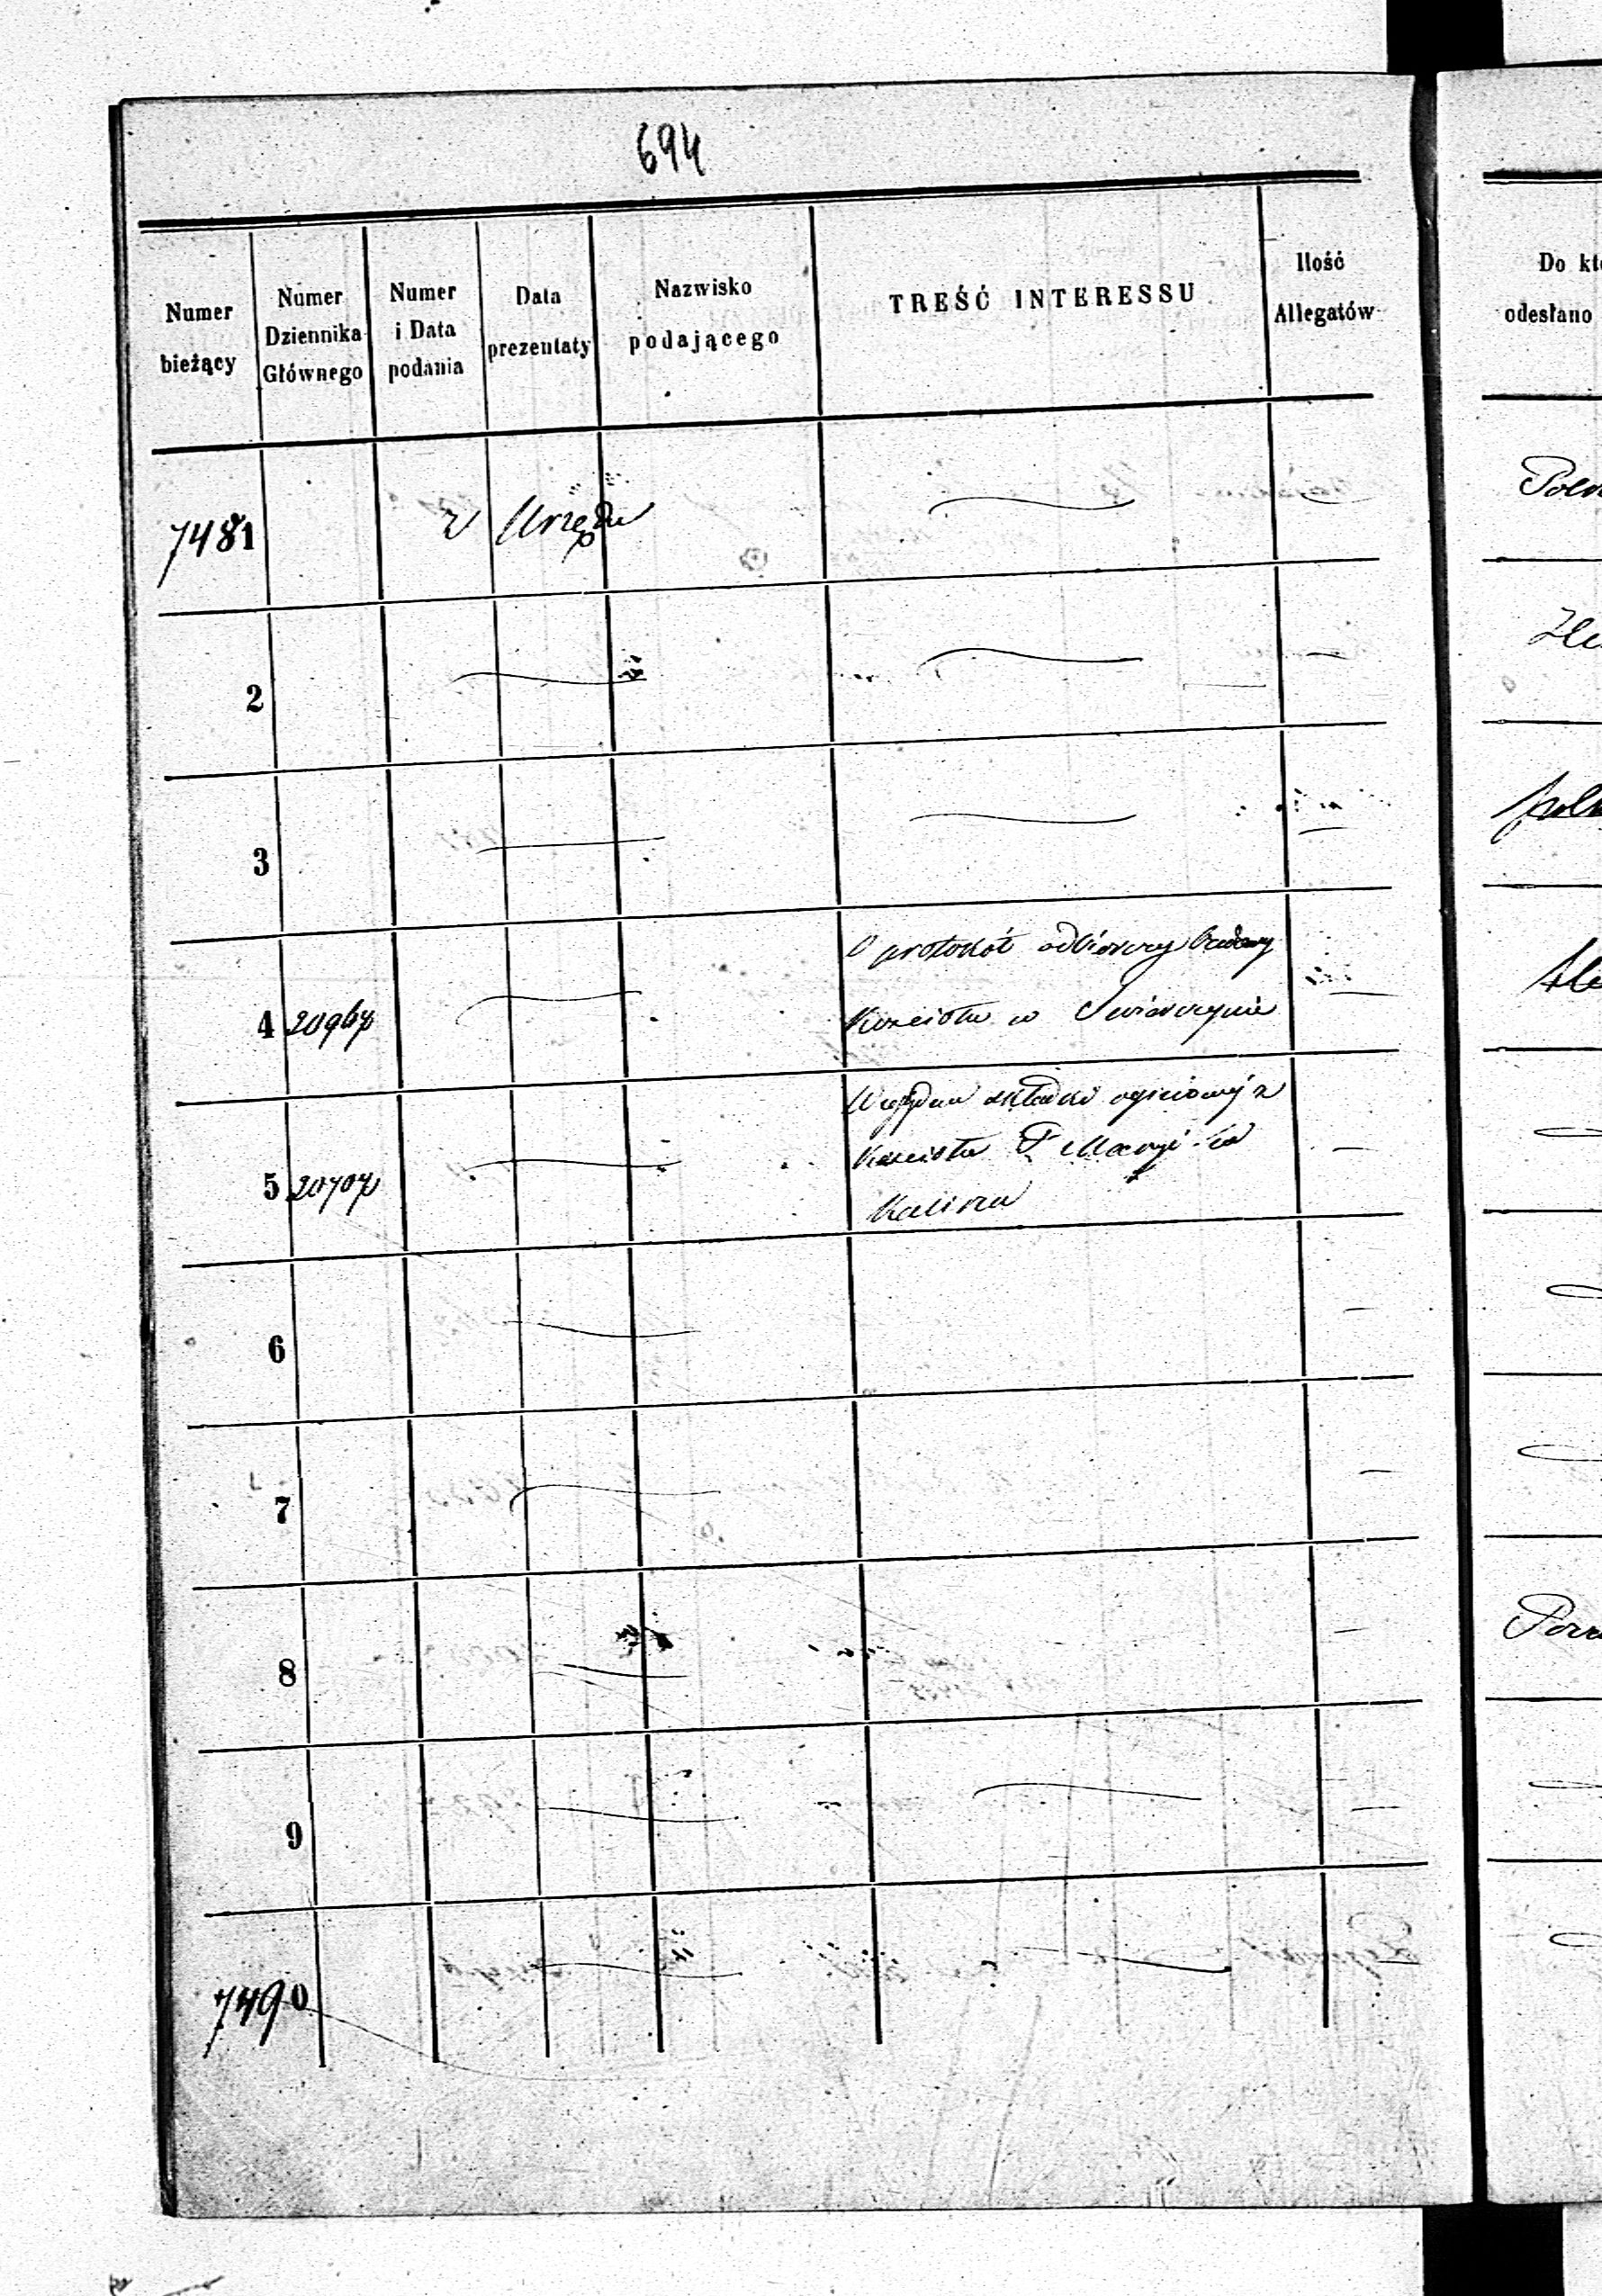 694
Numer bieżący
Numer Dziennika Głównego
Numer i Data podania
Data prezentaty
Nazwisko podającego
TREŚĆ INTERESSU
Ilość Allegatów
Do kt
odesłano
7481 z Urzędu
2
3
4 20967 O protokół odbiorczy budowy
Kościoła w
5 20707 składki ogniowej z
Kościoła P. Maryi w
Kalisza
6
7
8
9
7490